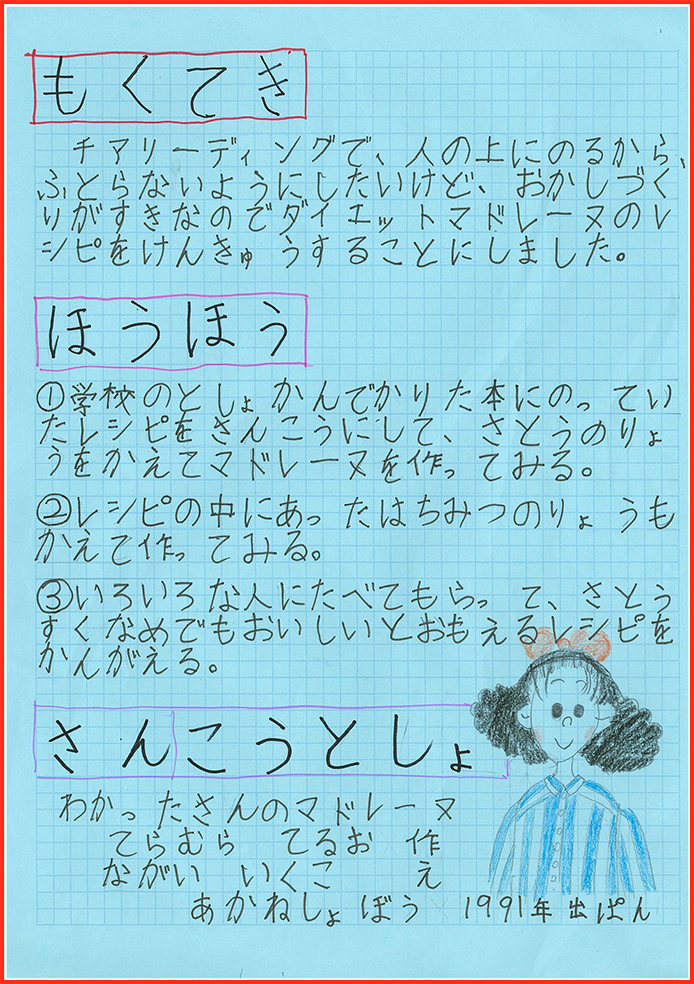 もくてき
チアリーディングで、人の上にのるから、
ふとらないようにしたいけど、おかしづく
りがすきなのでダイエットマドレーヌのレ
シピをけんきゅうすることにしました。
ほうほう
①学校のとしょかんでかりた本にのってい
たレシピをさんこうにして、さとうのりょ
うをかえてマドレーヌを作ってみる。
②レシピの中にあったはちみつのりょうも
かえて作ってみる。
③いろいろな人にたべてもらって、さとう
すくなめでもおいしいとおもえるレシピを
かんがえる。
さんこうとしょ
わかったさんのマドレーヌ
てらむら てるお 作
ながい いくこ え
あかねしょぼう 1991年出ぱん